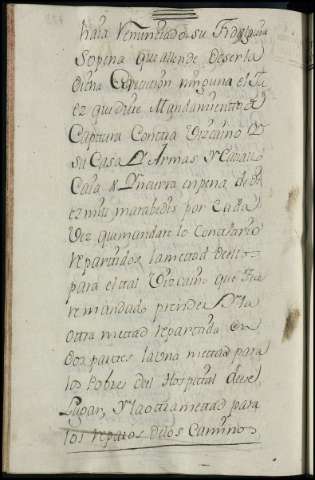 haia renunciado su
so pena que allende de ser la
dicha execucion ninguna el Ju
ez que diere Mandamiento de
Captura Contra Vizcaino de
su Casa de Armas y Cavallo
Caia e yncurra en pena de di
ez mill marabedis por cada
Vez que mandare lo Contrario
repartidos la metad dello
para el tal Vizcaino que fue
re mandado prender y la
otra metad repartida en
dos partes la una metad para
los Pobres del Hospital de ese
Lugar, y la otra metad para
los reparos de los Caminos